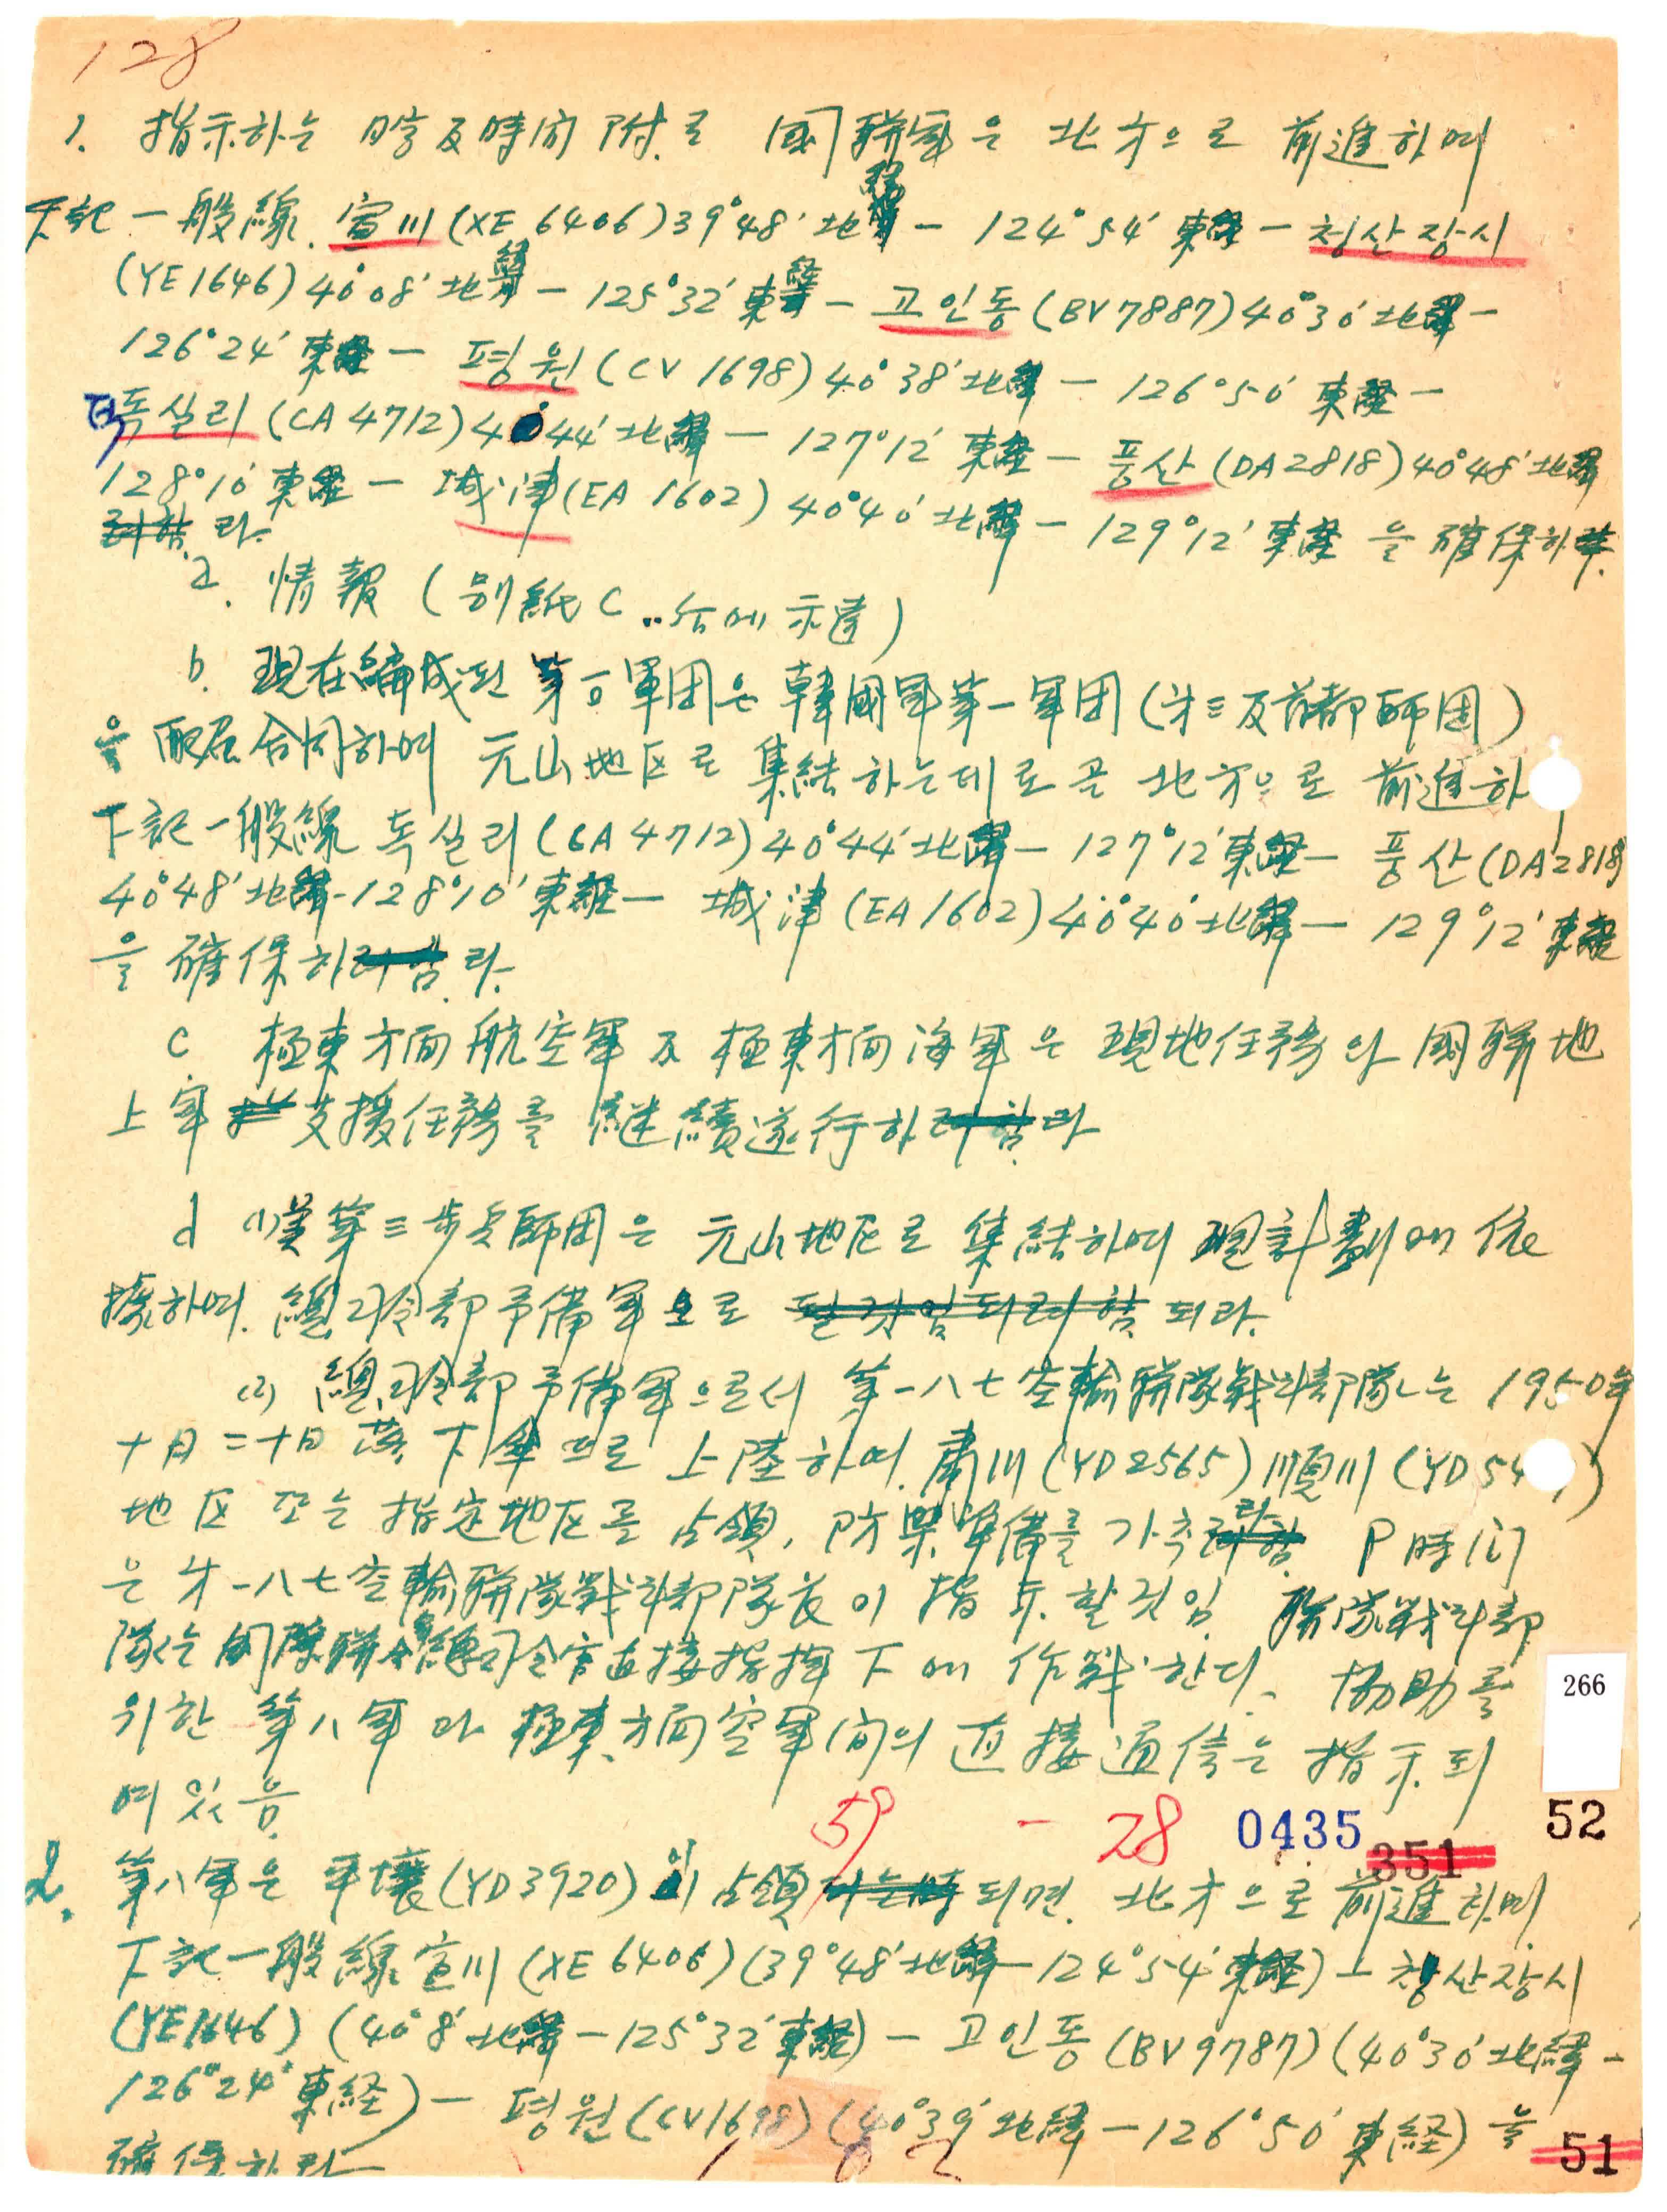 128
1. 指示하는 日字及時间附로 國聯軍은 北方으로 前進하며
下記一般線. 宣川(XE 6406)39°48′北緯 - 124°54′東經 - 청산장시
(YE1646)40°08′北緯 - 125°32′東經 - 고인동(BV7887)40°30′北緯 -
126°24′東經 - 평원(CV 1698)40°38′北緯 - 126°50′東經 -
덕실리(CA 4712)40°44′北緯 - 127°12′東經 - 풍산(DA2818)40°48′北緯
128°10′東經 - 城津(EA 1602)40°40′北緯 - 129°12′東經을 確保하
라.
a. 情報(別紙C..后에 示達)
b. 現在編成된 第十軍団은 韓國軍第一軍団(第三及首都師団)
을 配属合同하여 元山地区로 集結하는데로 곧 北方으로 前進하
下記一般線 독실리(CA4712)40°44′北緯 - 127°12′東經 - 풍산(DA2818)
40°48′北緯-128°10′東經 - 城津(EA1602)40°40′北緯 - 129°12′東經
을 確保하라.
C. 極東方面航空軍及極東方面海軍은 現地任務와 國聯地
上軍 支援任務를 継續遂行하라
d (1)美第三步兵師団은 元山地区로 集結하여 現計劃에 依
據하며. 總司令部予備軍으로 되라.
(2) 總司令部予備軍으로서 第一八七空輸聯隊戰斗部隊는 1950年
十月二十日 落下傘으로 上陸하여. 肅川(YD2565)順川(YD54)
地区 또는 指定地区를 占領, 防禦準備를 가추라 P時间
은 第一八七空輸聯隊戰斗部隊長이 指示할것임. 聯隊戰斗部
隊는 国際聯合總司令官直接指揮下에 作戰한다. 協助를
위한 第八軍과 極東方面空軍间의 直接通信은 指示되
여있음
59 - 28 0435 351 52
266
2. 第八軍은 平壤(YD3920)이 占領되면. 北方으로 前進하며
下記一般線宣川(XE6406)(39°48′北緯-124°54′東經) - 청산장시
(YE1646)(40°8′北緯-125°32′東經) - 고인동(BV9787)(40°30′北緯-
126°24′東経) - 평원(CV1698)(40°39′北緯-126°50′東経)을
確保하라
51